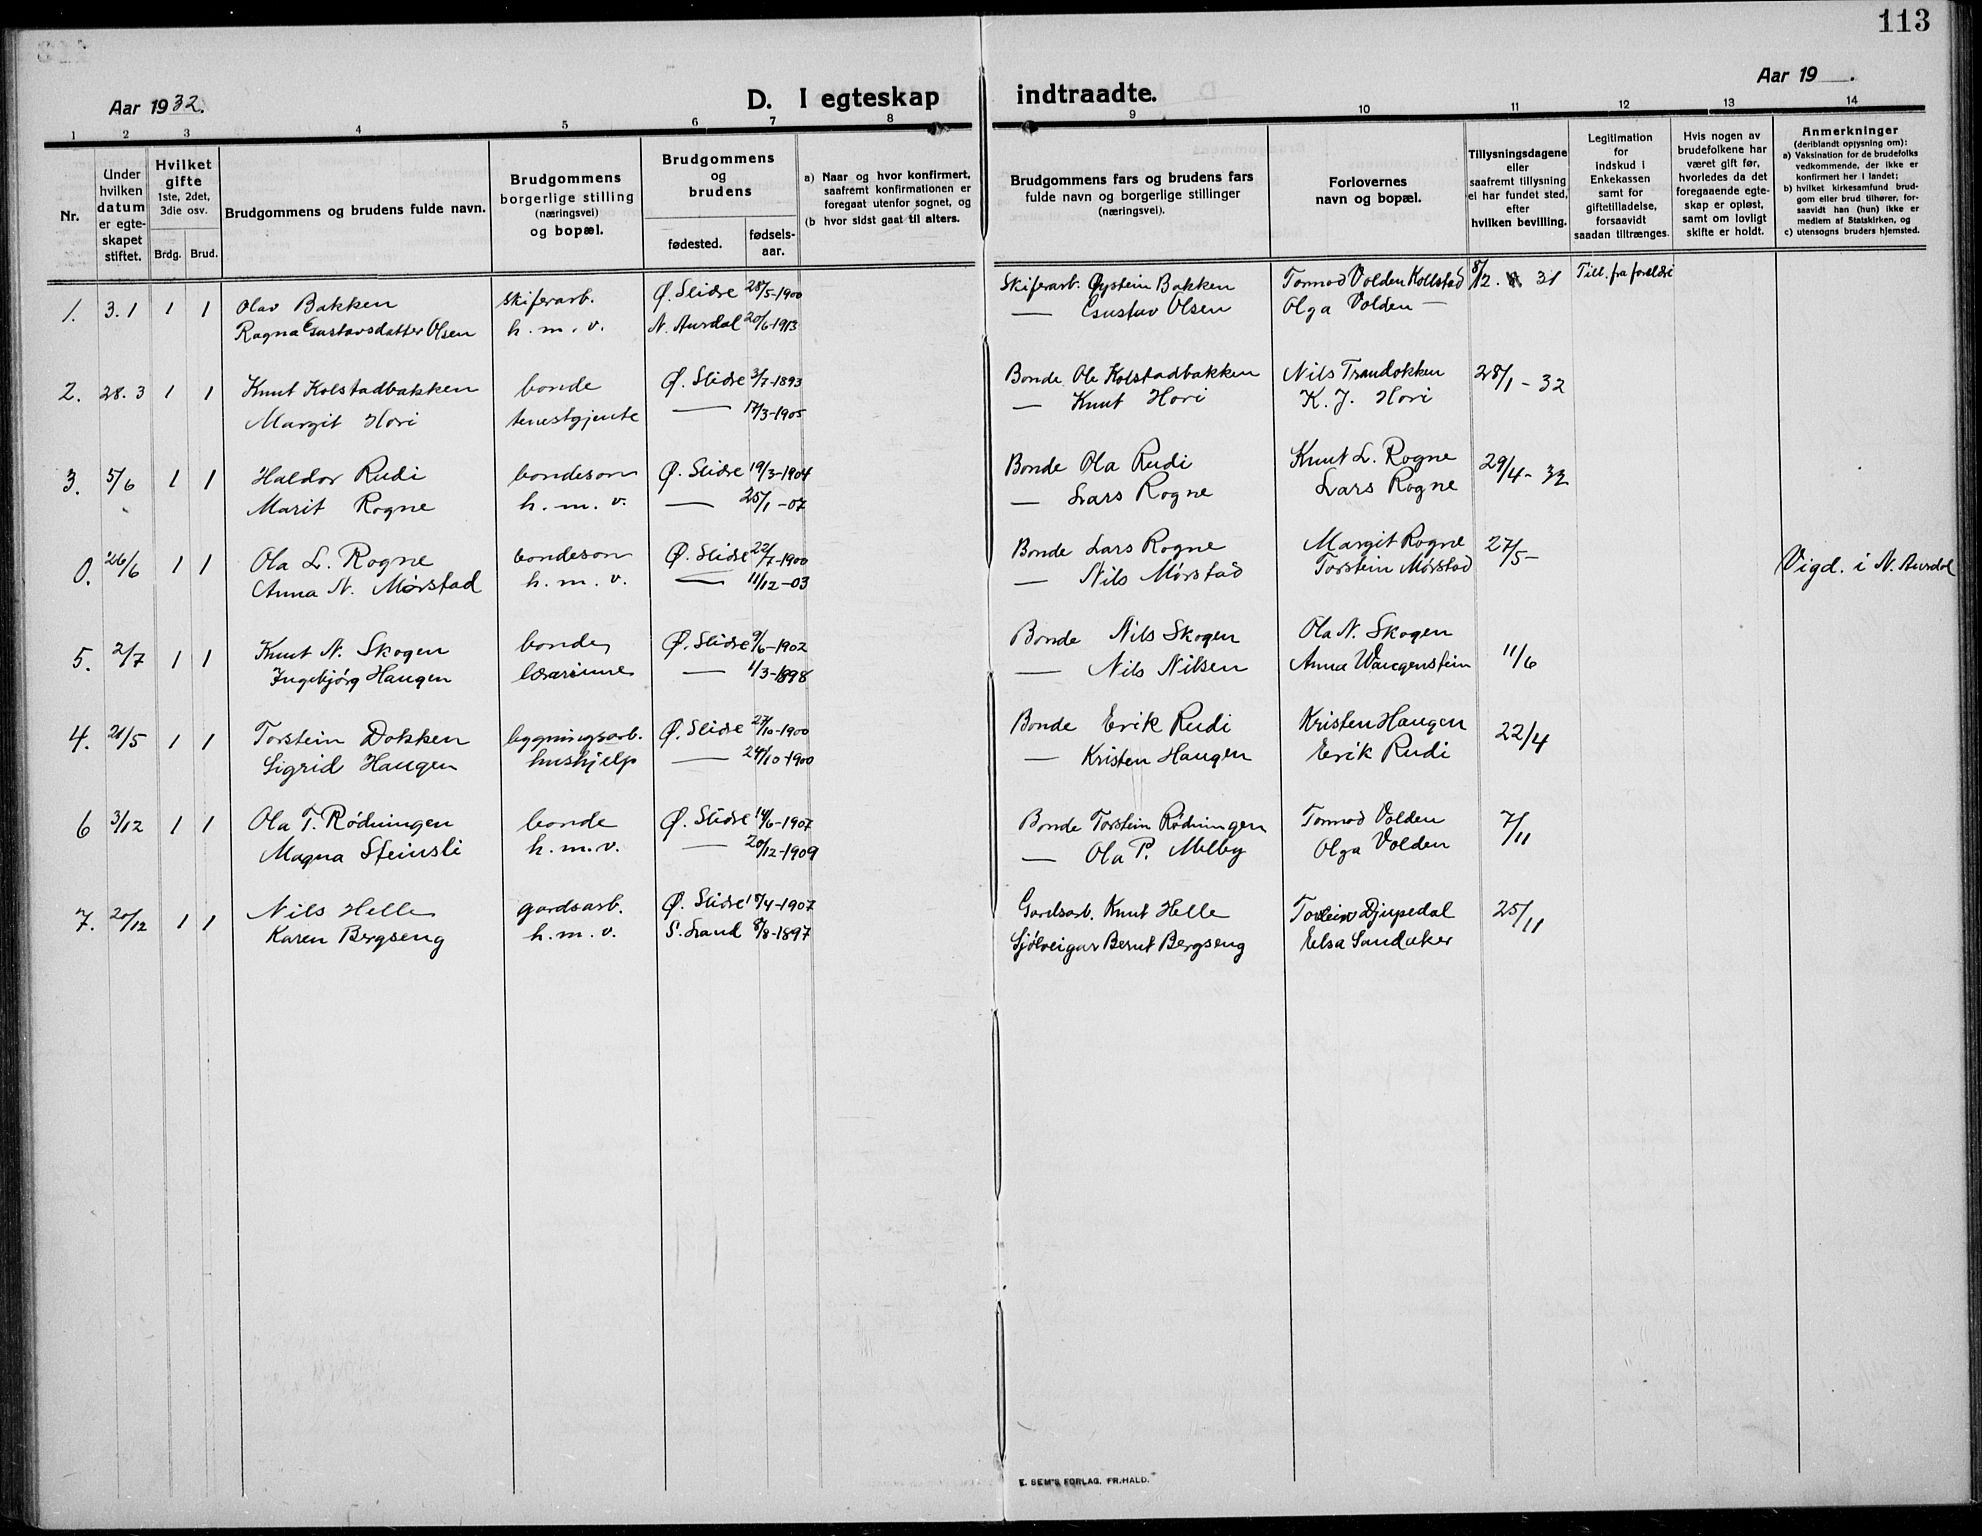 113
Aar 1932.
D. I egteskap indtraadte.
Aar 19 .
1 2 3 4 5 6 7 8 9 10 11 12 13 14
Nr.
Under hvilken datum er egte-skapet stiftet.
Hvilket gifte 1ste, 2det, 3die osv.
Brdg. Brud.
Brudgommens og brudens fulde navn.
Brudgommens borgerlige stilling (næringsvei) og bopæl.
Brudgommens og brudens
fødested. fødsels-aar.
a) Naar og hvor konfirmert, saafremt konfirmationen er foregaat utenfor sognet, og
(b hvor sidst gaat til alters.
Brudgommens fars og brudens fars fulde navn og borgerlige stillinger (næringsvei).
Forlovernes navn og bopæl.
Tillysningsdagene eller saafremt tillysning ei har fundet sted, efter hvilken bevilling.
Legitimation for indskud i Enkekassen samt for giftetilladelse, forsaavidt saadan tiltrænges.
Hvis nogen av brudefolkene har været gift før, hvorledes da det foregaaende egte-skap er opløst, samt om lovligt skifte er holdt.
Anmerkninger (deriblandt oplysning om):
a) Vaksination for de brudefolks vedkommende, der ikke er konfirmert her i landet;
b) hvilket kirkesamfund brud-gom eller brud tilhører, for-saavidt han (hun) ikke er medlem af Statskirken, og
c) utensogns bruders hjemsted.
1. 3.1 1 1 Olav Bakken skiferarb. Ø. Slidre 28/5-1900 Skiferarb. Øystein Bakken Tormod Volden Kollstad 8/12. 31 Till. fra foreldre
Ragna Gustavsdatter Olsen h. m. v. N. Aurdal 20/6-1913 — Gustav Olsen Olga Volden —
2. 28.3 1 1 Knut Kolstadbakken bonde Ø. Slidre 3/7-1893 Bonde Ole Kolstadbakken Nils Trandokken 28/1-32
Margit Hori tenestgjente — 17/3-1905 — Knut Hori K. J. Hori
3. 5/6 1 1 Haldor Rudi bondeson Ø. Slidre 19/3-1904 Bonde Ola Rudi Knut L. Rogne 29/4-32
Marit Rogne h. m. v. — 25/1-07 — Lars Rogne Lars Rogne
0. 26/6 1 1 Ola L. Rogne bondeson Ø. Slidre 22/7-1900 Bonde Lars Rogne Margit Rogne 27/5- Vigd. i N. Aurdal
Anna N. Mørstad h. m. v. — 11/12-03 — Nils Mørstad Torstein Mørstad
5. 2/7 1 1 Knut N. Skogen bonde Ø. Slidre 9/6-1902 Bonde Nils Skogen Ola N. Skogen 11/6
Ingebjørg Haugen lærarinne — 1/3-1898 — Nils Nilsen Anna Wangenstein
4. 21/5 1 1 Torstein Dokken bygningsarb. Ø. Slidre 27/10-1900 Bonde Erik Rudi Kristen Haugen 22/4
Sigrid Haugen hushjelp — 24/10-1900 — Kristen Haugen Erik Rudi
6 3/12 1 1 Ola T. Rødningen bonde Ø. Slidre 14/6-1907 Bonde Torstein Rødningen Tormod Volden 7/11
Magna Steinsli h.m.v. — 20/12-1909 — Ola P. Melby Olga Volden
7. 20/12 1 1 Nils Helle gardsarb. Ø. Slidre 18/4-1907 Gardsarb. Knut Helle Torstein Djupedal 25/11
Karen Bergseng h. m. v. S. Land 8/8-1897 Sjølveigar Bernt Bergseng Elsa Sandaker
E. SEM'S FORLAG. FR.HALD.